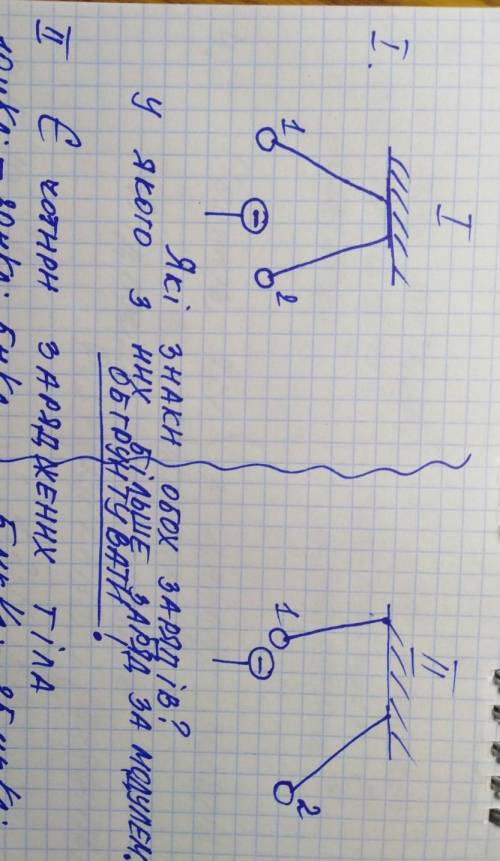 I.
I
II
1
2
1
2
Які знаки обох зарядів?
У якого з них більше заряд за модулем.
Обґрунтувати!
II Є чотири заряджених тіла